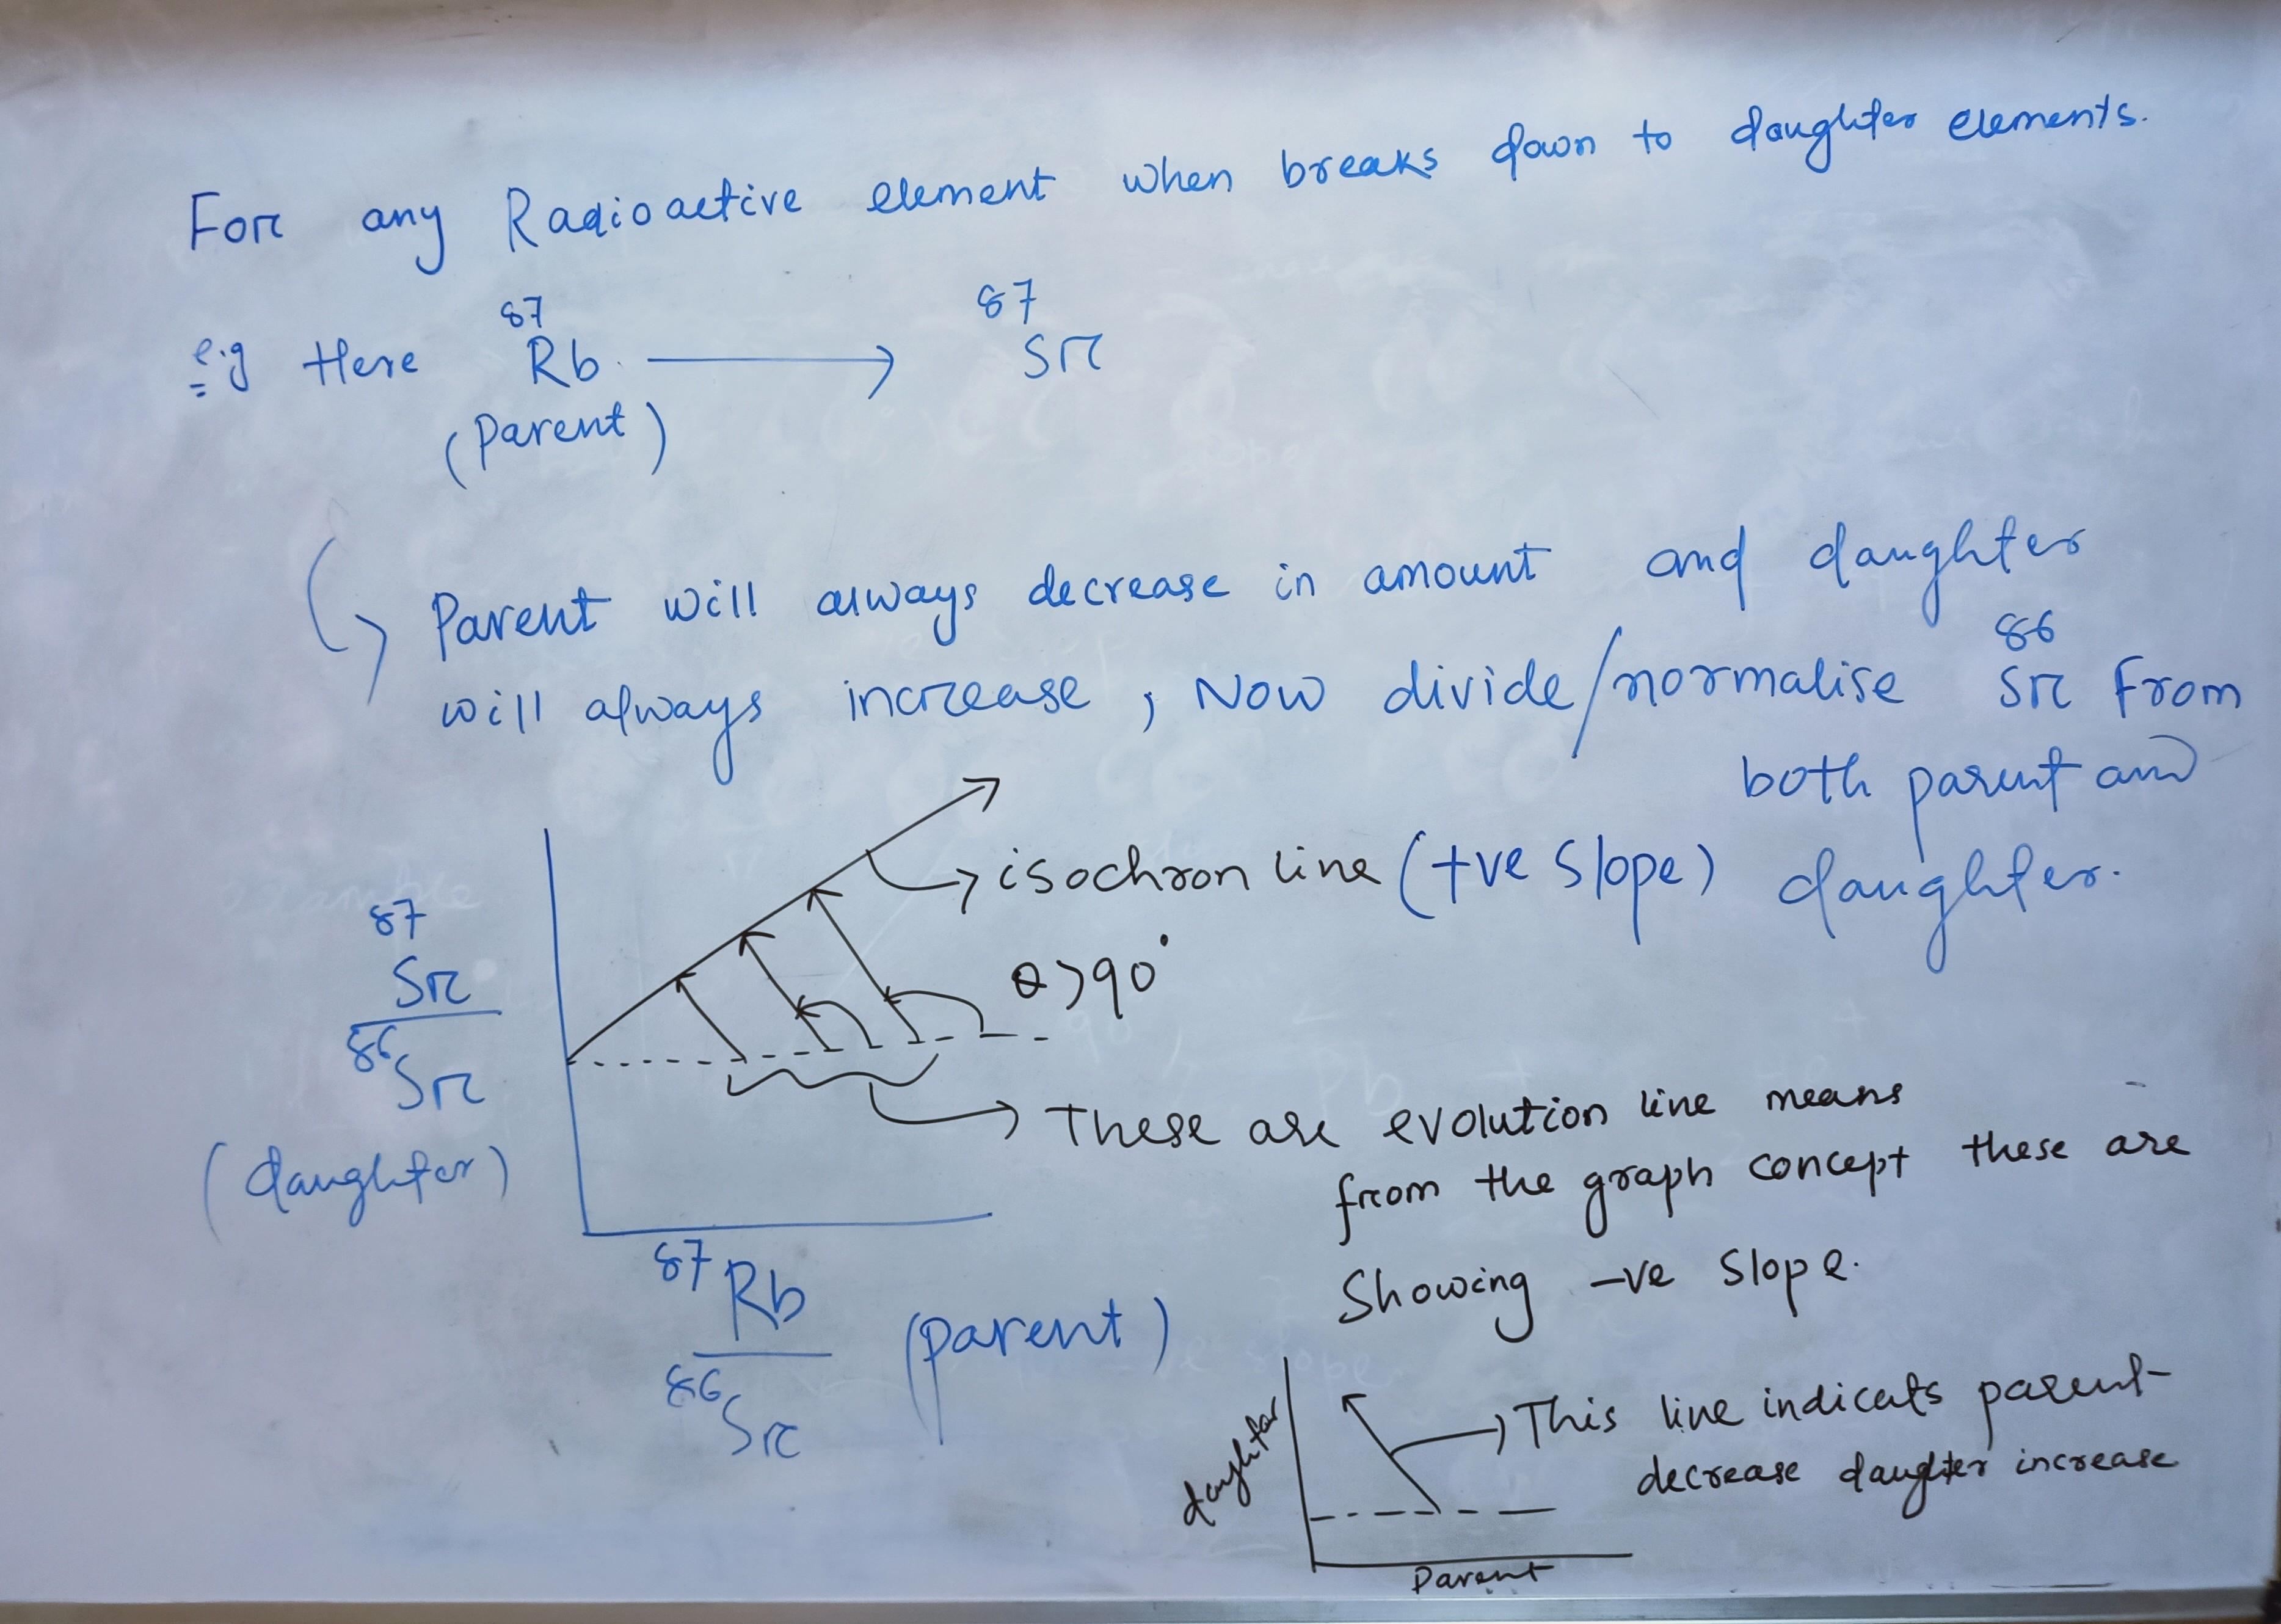 For any Radioactive element when breaks down to daughter elements.
e.g Here ⁸⁷Rb ⟶ ⁸⁷Sr
(Parent)
Parent will always decrease in amount and daughter
will always increase, Now divide/normalise ⁸⁶Sr from
both parent and
daughter.
isochron line (+ve slope)
θ>90°
⁸⁷Sr
⁸⁶Sr
(daughter)
These are evolution line means
from the graph concept these are
Showing -ve slope.
⁸⁷Rb
⁸⁶Sr
(parent)
daughter
This line indicats parent
decrease daughter increase
Parent